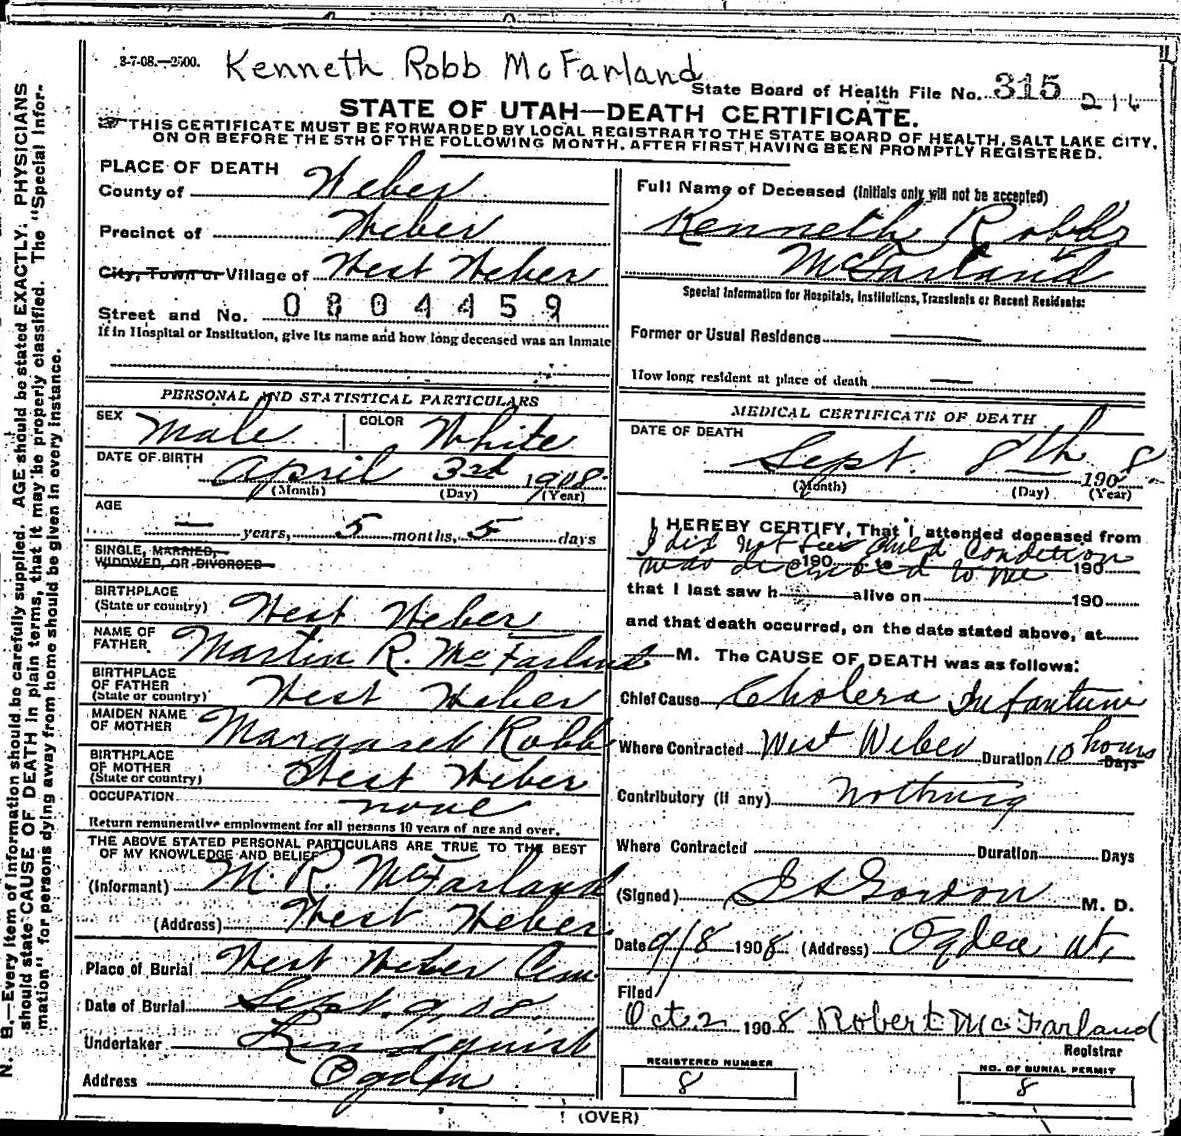 3-7-08.—2500.
Kenneth Robb McFarland
State Board of Health File No. 315 216
STATE OF UTAH—DEATH CERTIFICATE.
THIS CERTIFICATE MUST BE FORWARDED BY LOCAL REGISTRAR TO THE STATE BOARD OF HEALTH, SALT LAKE CITY,
ON OR BEFORE THE 5TH OF THE FOLLOWING MONTH, AFTER FIRST HAVING BEEN PROMPTLY REGISTERED.
N. B.—Every item of information should be carefully supplied. AGE should be stated EXACTLY. PHYSICIANS
should state CAUSE OF DEATH in plain terms, that it may be properly classified. The "Special Infor-
mation" for persons dying away from home should be given in every instance.
PLACE OF DEATH
County of Weber
Precinct of Weber
City, Town or Village of West Weber
Street and No. 0804459
If in Hospital or Institution, give its name and how long deceased was an Inmate
PERSONAL AND STATISTICAL PARTICULARS
SEX Male COLOR White
DATE OF BIRTH April 3rd 1908
(Month) (Day) (Year)
AGE
— years, 5 months, 5 days
SINGLE, MARRIED,
WIDOWED, OR DIVORCED
BIRTHPLACE
(State or country) West Weber
NAME OF
FATHER Martin R. McFarland
BIRTHPLACE
OF FATHER
(State or country) West Weber
MAIDEN NAME
OF MOTHER Margaret Robb
BIRTHPLACE
OF MOTHER
(State or country) West Weber
OCCUPATION none
Return remunerative employment for all persons 10 years of age and over.
THE ABOVE STATED PERSONAL PARTICULARS ARE TRUE TO THE BEST
OF MY KNOWLEDGE AND BELIEF
(Informant) M. R. McFarland
(Address) West Weber
Place of Burial West Weber Cem
Date of Burial Sept. 9, 08.
Undertaker Lindquist
Address Ogden
Full Name of Deceased (Initials only will not be accepted)
Kenneth Robb
McFarland
Special Information for Hospitals, Institutions, Transients or Recent Residents:
Former or Usual Residence —
How long resident at place of death —
MEDICAL CERTIFICATE OF DEATH
DATE OF DEATH
Sept. 8th 1908
(Month) (Day) (Year)
I HEREBY CERTIFY, That I attended deceased from
I did not see child Condition
190 to 190
was described to me
that I last saw h alive on 190
and that death occurred, on the date stated above, at
M. The CAUSE OF DEATH was as follows:
Chief Cause Cholera Infantum
Where Contracted West Weber Duration 10 hours Days
Contributory (if any) Nothing
Where Contracted Duration Days
(Signed) Gordon M. D.
Date 9/8 1908 (Address) Ogden Ut,
Filed
Oct 2 1908 Robert McFarland
Registrar
REGISTERED NUMBER
8
NO. OF BURIAL PERMIT
8
(OVER)